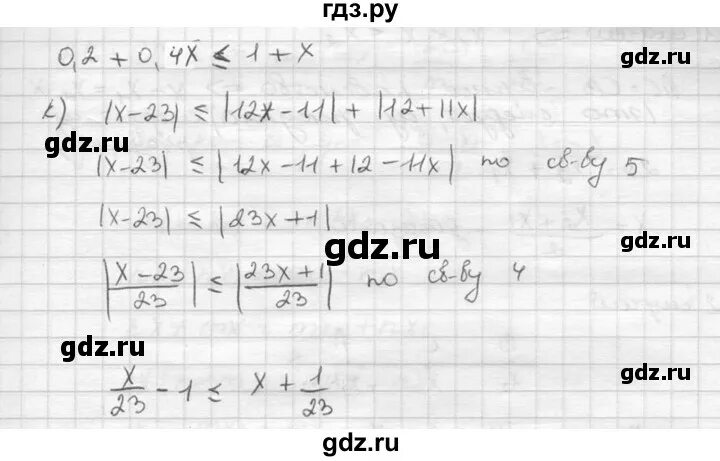 гдз.ру
0,2 + 0,4x ≤ 1 + x
к) |x-23| ≤ |12x-11| + |12+11x|
|x-23| ≤ |12x-11+12-11x| по св-ву 5
|x-23| ≤ |23x+1|
gdz.ru
|x-23/23| ≤ |23x+1/23| по св-ву 4
gdz.ru
x/23 - 1 ≤ x + 1/23
gdz.ru